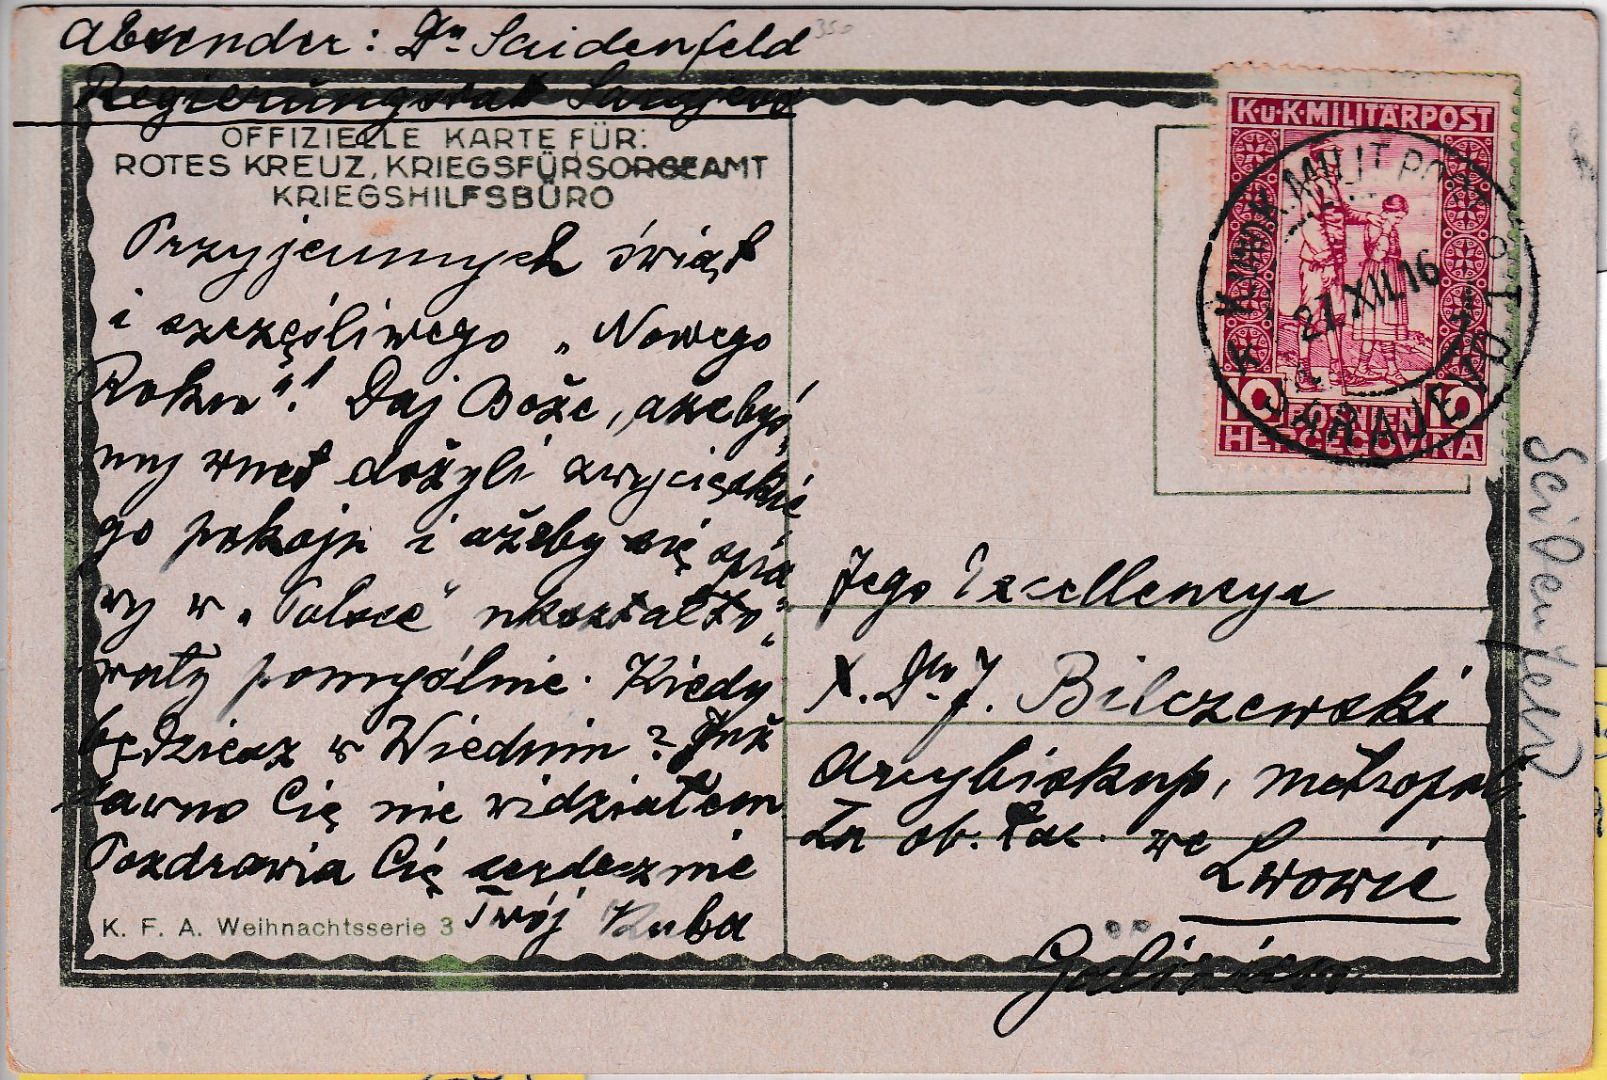 Absender: Dr Seidenfeld
Regierungsrat Sarajevo
OFFIZIELLE KARTE FÜR:
ROTES KREUZ, KRIEGSFÜRSORGEAMT
KRIEGSHILFSBÜRO
Przyjemnych świąt
i szczęśliwego „Nowego
Roku"! Daj Boże, ażebyś-
my wnet dożyli zwycięskie
go pokoju i ażeby się spra
wy w „Polsce" ukształto-
wały pomyślnie. Kiedy
będziesz w Wiedniu? Już
dawno Cię nie widziałem
Pozdrawia Cię serdecznie
Twój Kuba
K. F. A. Weihnachtsserie 3
K.u.K.MILITÄRPOST
10 BOSNIEN 10
HERCEGOWINA
K.u.K. MILIT. POST
27 XII 16
SARAJEVO
Jego Excellencya
X. Dr J. Bilczewski
arcybiskup, metropoli
ta ob. łac. we
Lwowie
Galizien
Seidenfeld
350